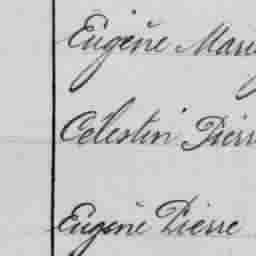 Eugène Mar
Célestin Pier
Eugène Pierre